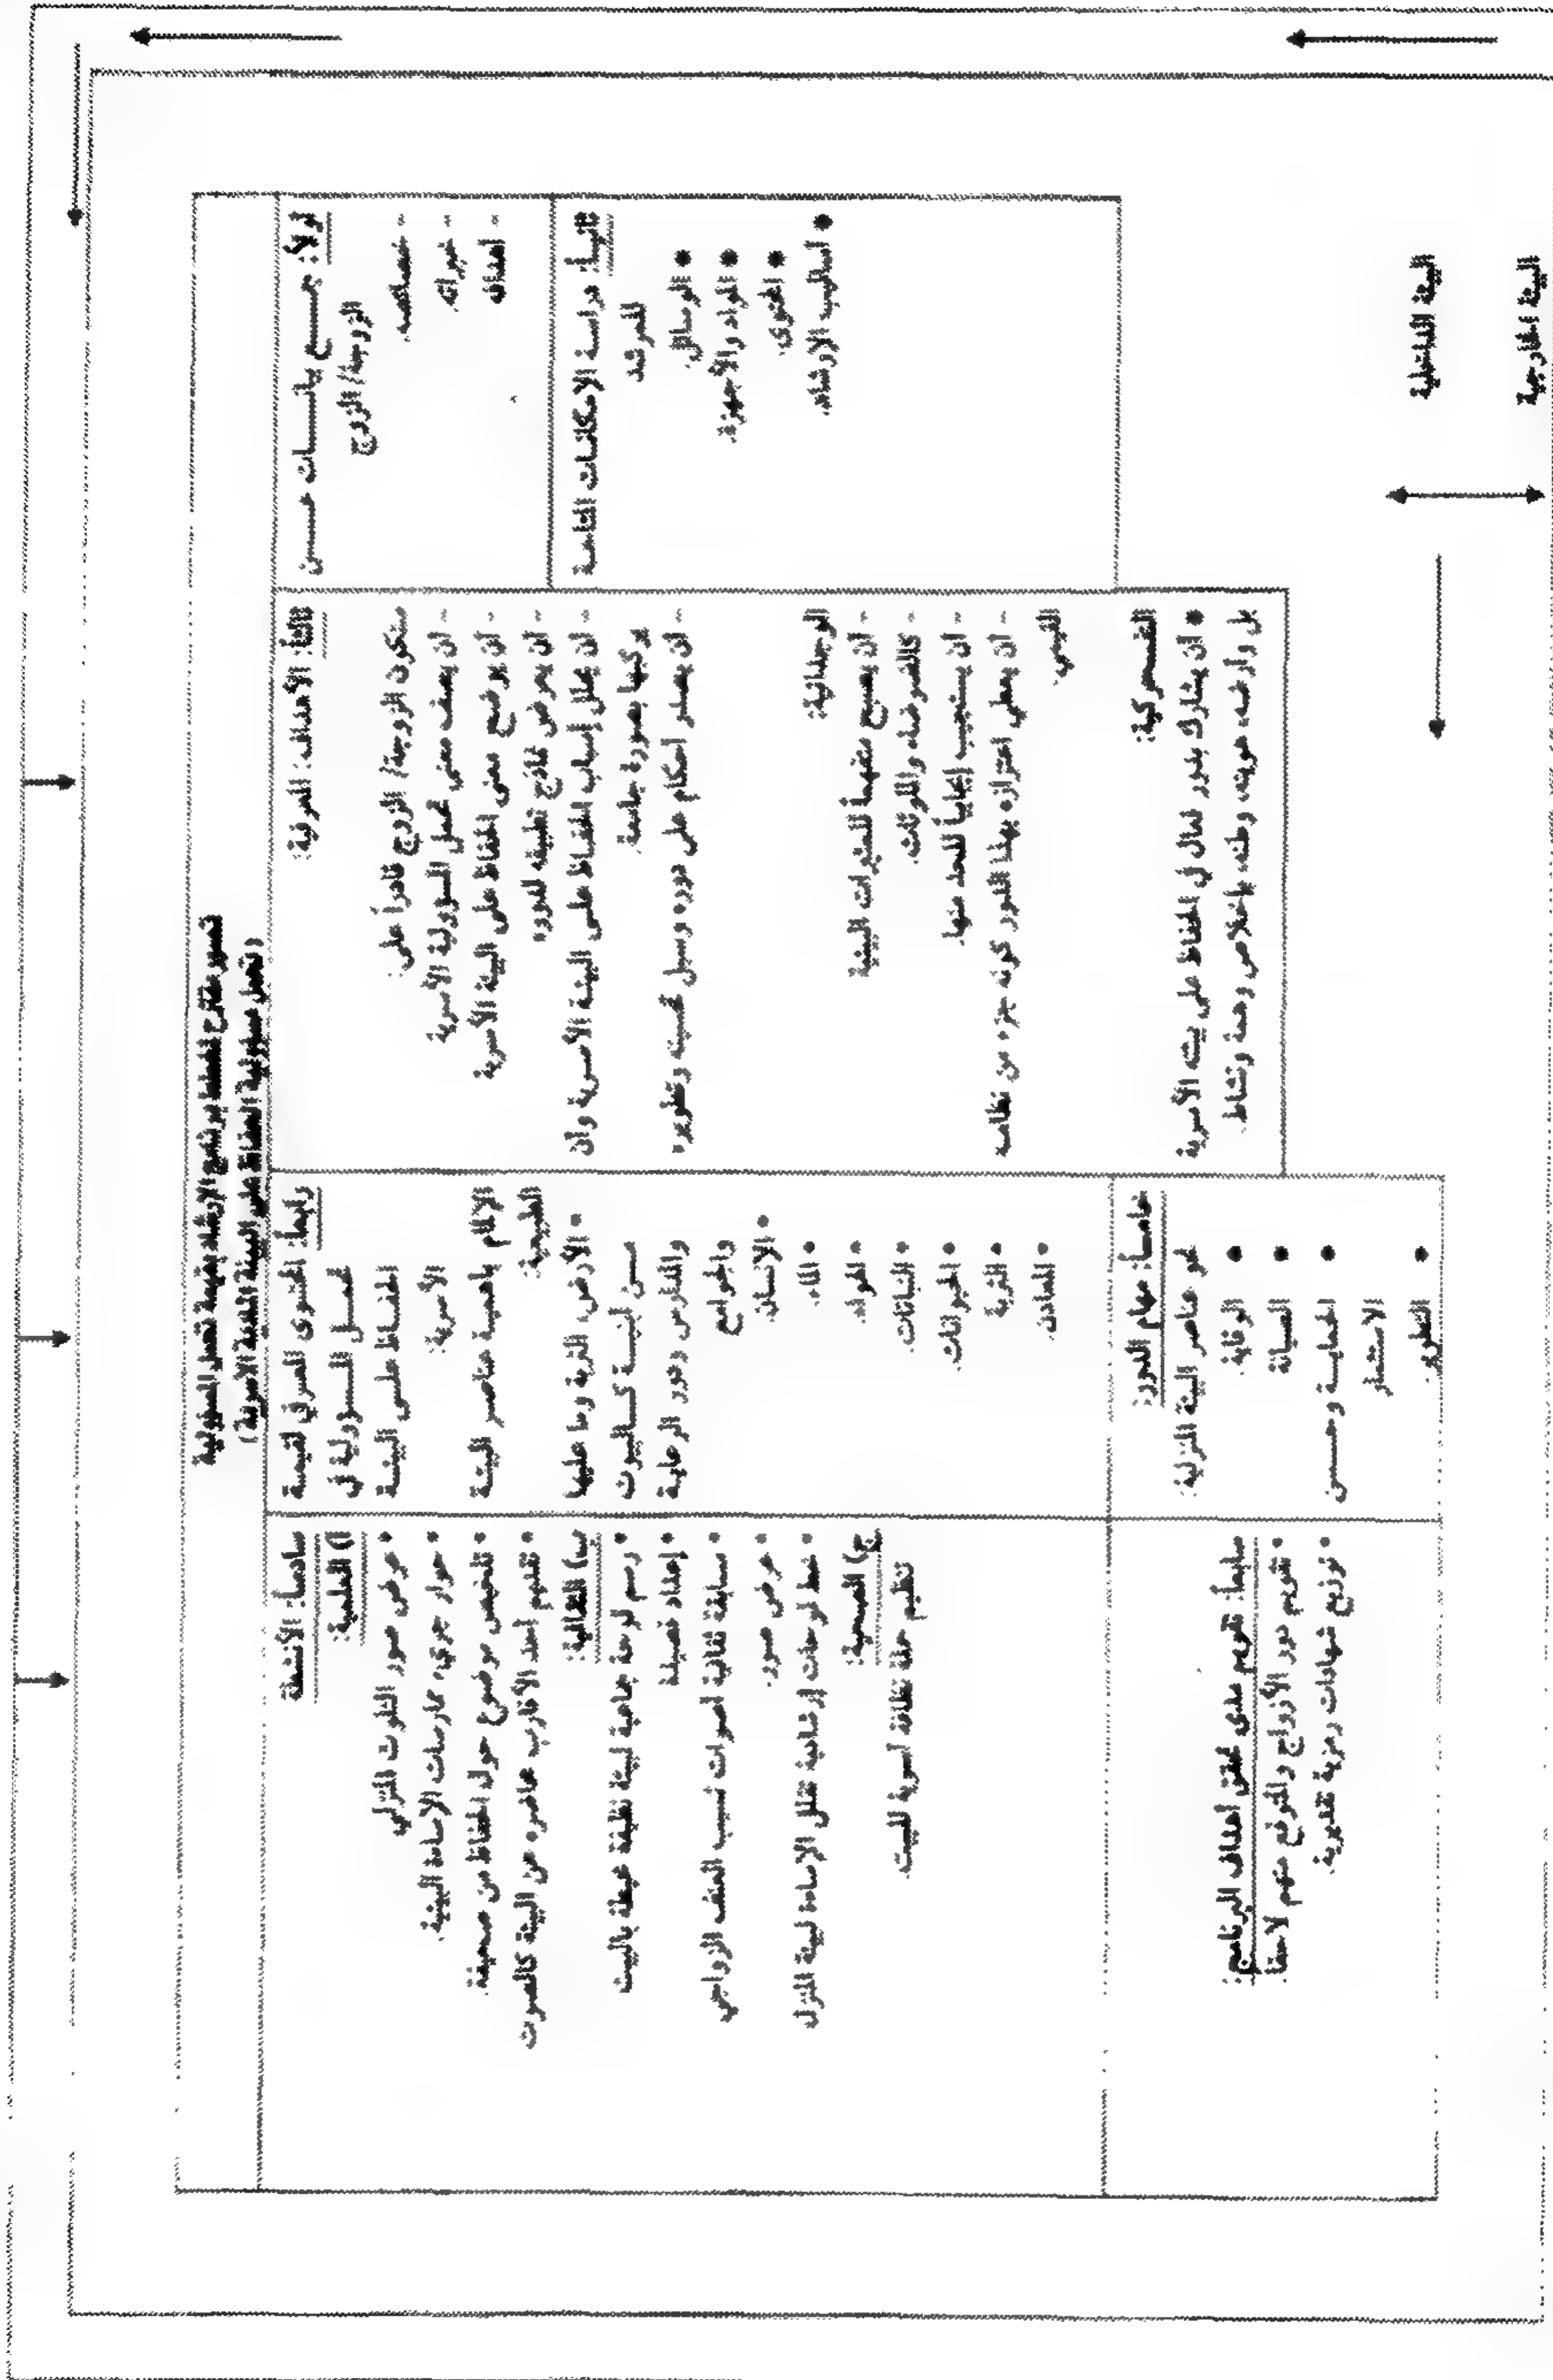 تصور مقترح لمخطط برنامج الإرشاد بقيمة تحمل المسؤولية
(تحمل مسؤولية الحفاظ على البيئة المادية الأسرية)
أولاً: جمــع بيانــــات عــــن
الزوجة/ الزوج
- خصائصه.
- خبراته.
- أهدافه
ثانياً: دراسة الإمكانات المتاحة
للمرشد
● الوسائل.
● المواد والأجهزة.
● المحتوى.
● أساليب الإرشاد.
ثالثاً: الأهداف: المعرفية:
ستكون الزوجة/ الزوج قادراً على:
- أن يصف معنى تحمل المسؤولية الأسرية
- أن يوضح معنى الحفاظ على البيئة الأسرية
- أن يعرض نماذج تطبيقه لدوره
- أن يحلل أسباب الحفاظ على البيئة الأسرية وأن
يركبها بصورة جامعة.
- أن يصدر أحكام على دوره وسبل تحسينه وتطويره
الوجدانية:
- أن يصبح متفهماً للمثيرات البيئية
- كالضوضاء والملوثات.
- أن يستجيب إيجابياً للحد منها.
- أن يعطي اعتزازه بهذا الدور كونه جزء من نظامه
القيمي.
النفسحركية:
● أن يشارك بدور فعال في الحفاظ على بيئته الأسرية
بل وأرضه، هويته، وطنه، بإخلاص وهمة ونشاط.
رابعاً: المحتوى المعرفي لقيمة
تحمــل المســؤولية في
الحفــاظ علــى البيئــة
الأسرية:
الإلمام بأهمية عناصر البيئة
الطبيعية:
• الأرض، التربة وما عليها
مــن أبنيــة كــالبيوت
والمدارس ودور الرعاية
والجوامع
• الإنسان.
• الماء.
• الهواء.
• النباتات.
• الحيوانات.
• التربة
• المعادن.
خامساً: مهام الدور:
نحو عناصر البيئة المنزلية:
● الوقاية.
● الصيانة
● الحمايــة وحســن
الاستثمار
● التطوير.
سادساً: الأنشطة
أ) العلمية:
• عرض صور التلوث المنزلي
• حوار جريء ممارسات الإساءة البيئية.
• تلخيص موضوع حول الحفاظ من صحيفة.
• تقديم أحد الأقارب محاضرة عن البيئة كالصوت
ب) الثقافية:
• رسم لوحة جماعية لبيئة نظيفة محيطة بالبيت
• إعداد قصيدة
• مسابقة ثقافية أصوات تسبب العنف الزواجي
• عرض صور.
• خط لوحات إرشادية تقلل الإساءة لبيئة المنزل
ج) الصحية:
تنظيم حملة نظافة أسرية للبيت.
سابعاً: تقويم مدى تحقق أهداف البرنامج:
• تقويم دور الأزواج والمتوقع منهم لاحقاً.
• توزيع شهادات رمزية تقديرية.
البيئة الداخلية
البيئة الخارجية